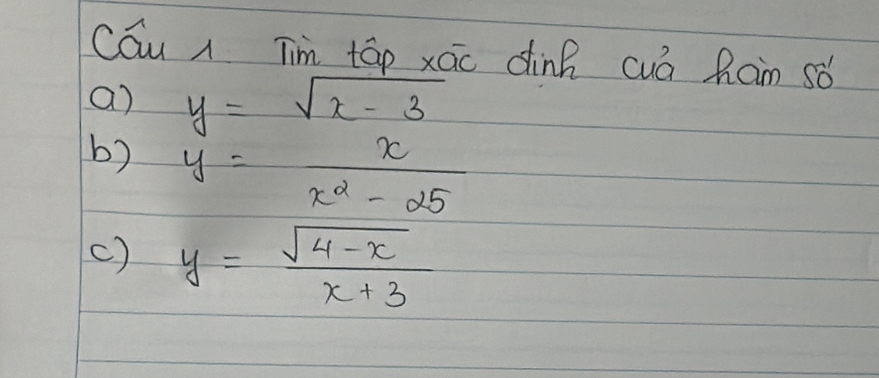 Câu 1 Tìm tập xác định của hàm số
a) y = √(x - 3)
b) y = x / (x² - 25)
c) y = √(4 - x) / (x + 3)